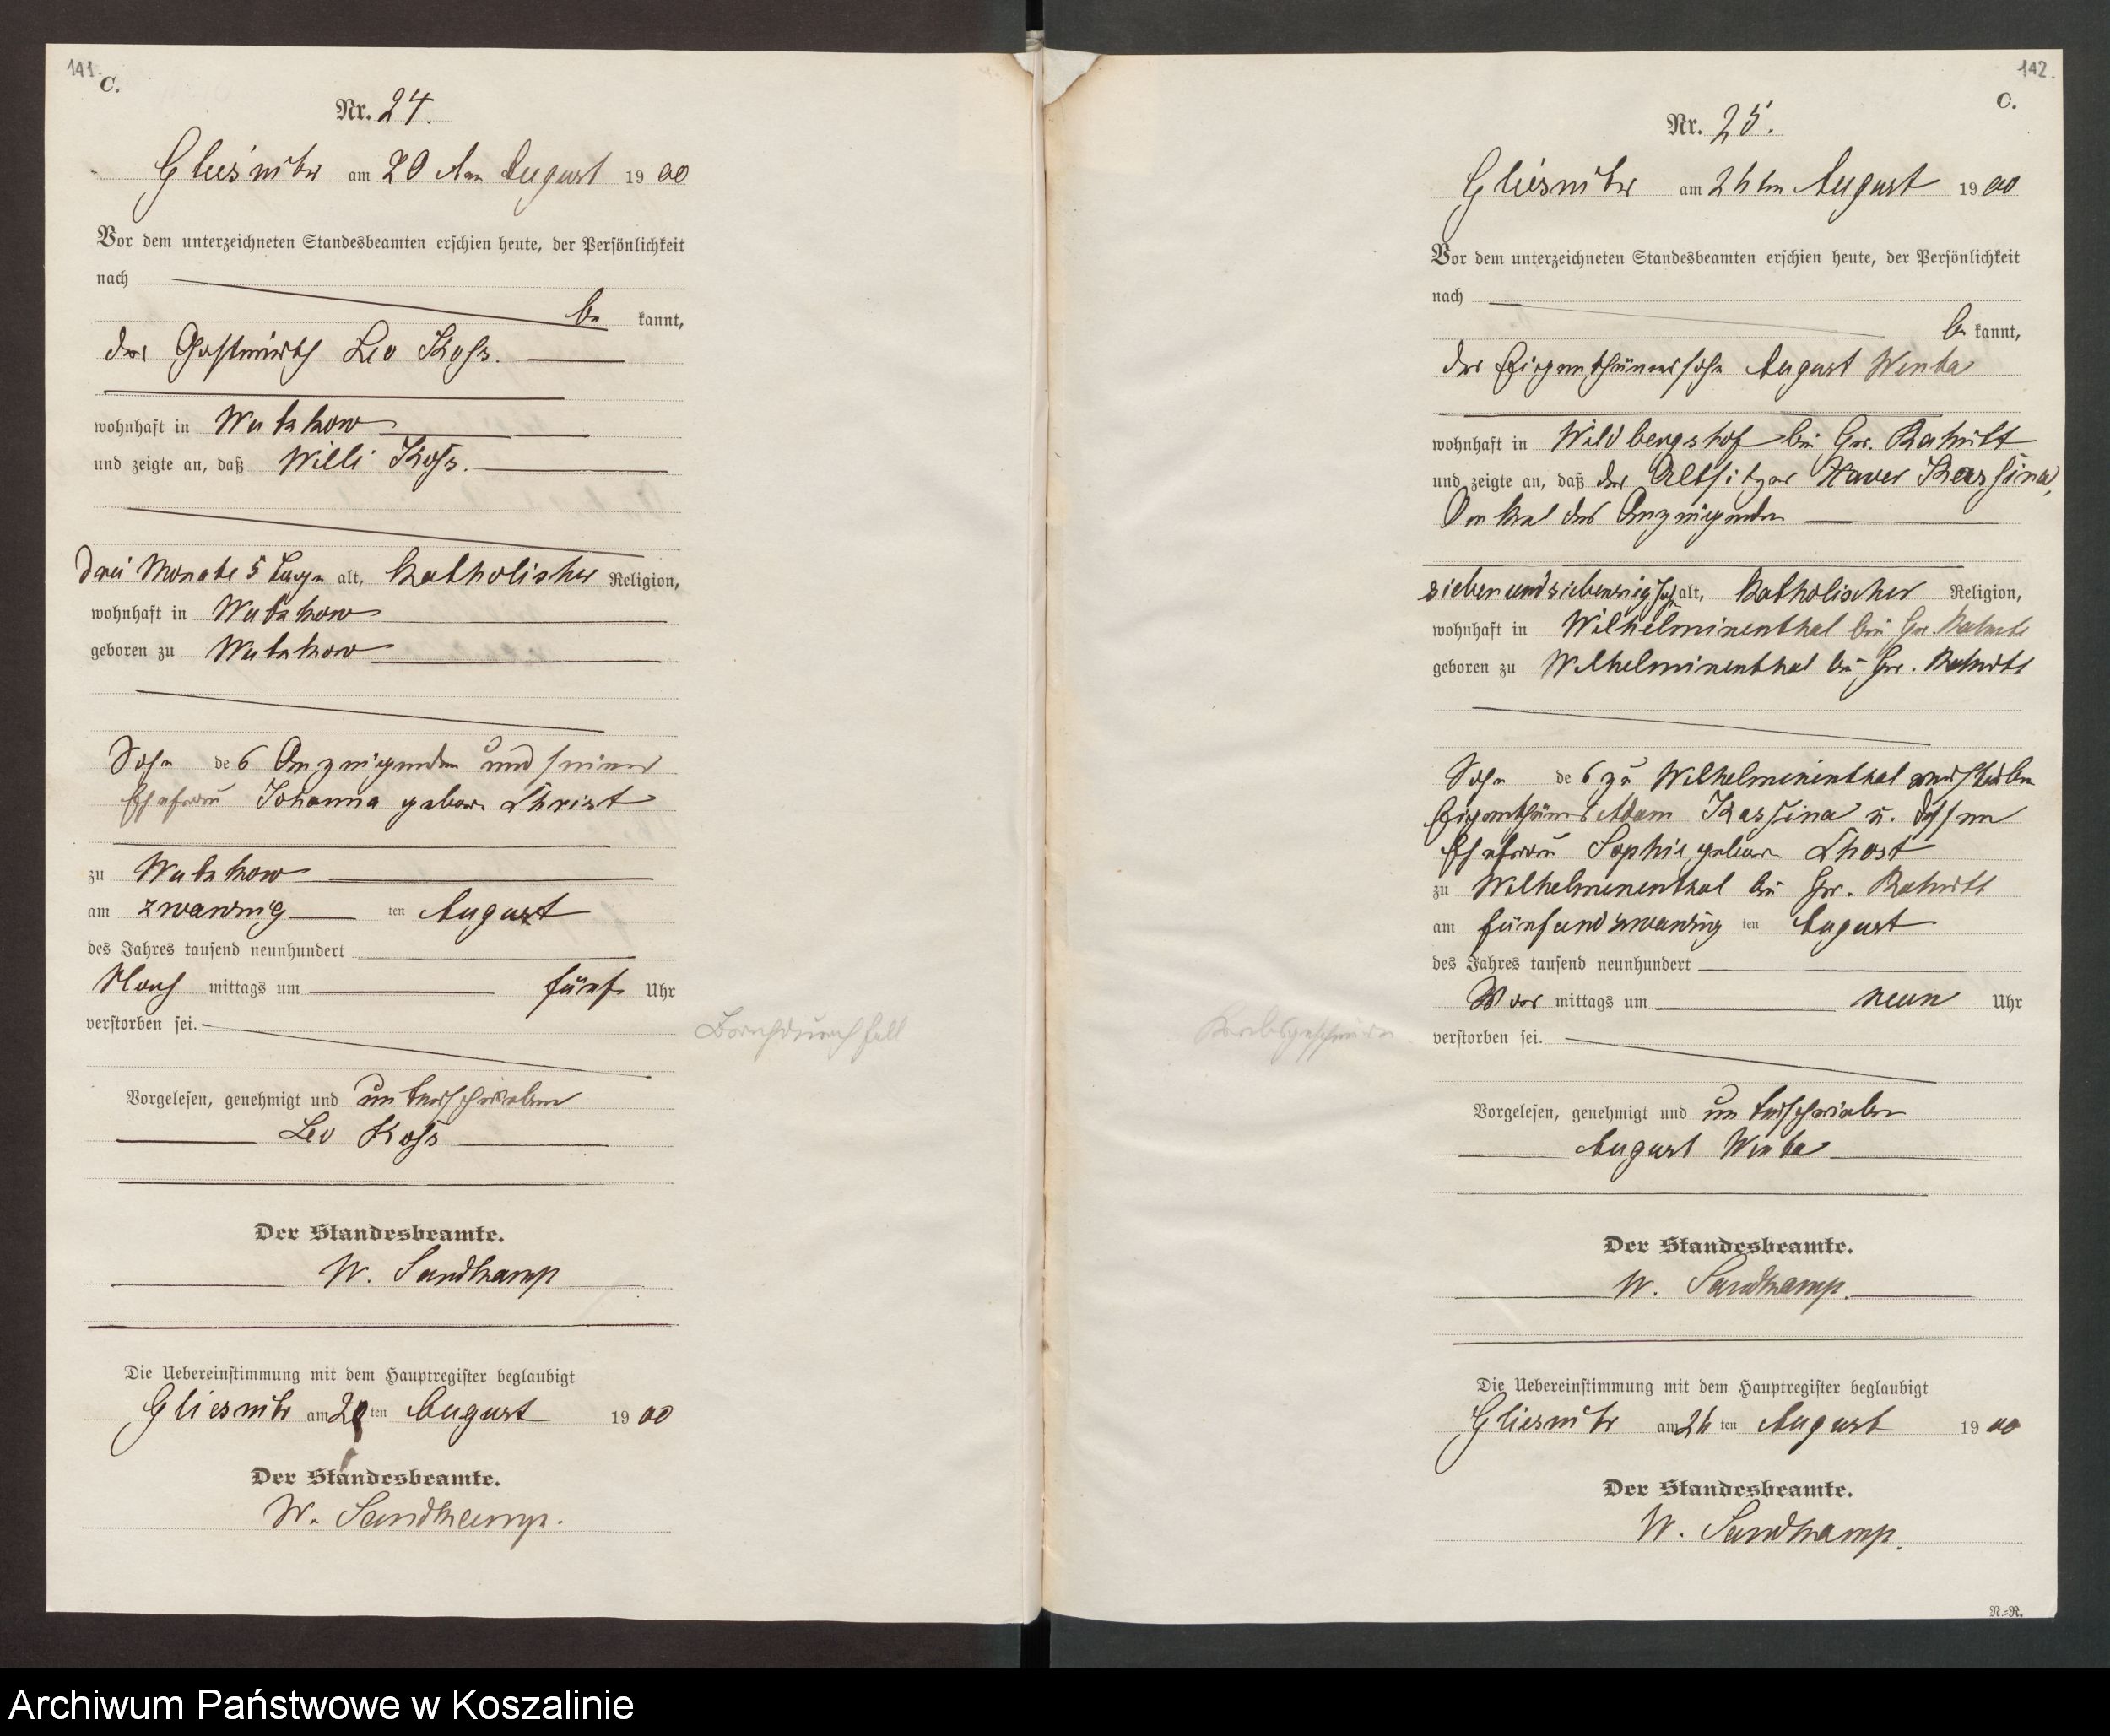 141.
C.
Nr. 24.
Gliesnitz am 20 ten August 19 00
Vor dem unterzeichneten Standesbeamten erschien heute, der Persönlichkeit
nach
be kannt,
der Gastwirth Leo Koss.
wohnhaft in Wutzkow
und zeigte an, daß Willi Koss.
drei Monate 5 Tage alt, katholischer Religion,
wohnhaft in Wutzkow
geboren zu Wutzkow
Sohn des Anzeigenden und seiner
Ehefrau Johanna geborn Christ
zu Wutzkow
am zwanzig ten August
des Jahres tausend neunhundert
Nach mittags um fünf Uhr
verstorben sei.
Brechdurchfall
Vorgelesen, genehmigt und unterschrieben
Leo Koss
Der Standesbeamte.
W. Sandkamp
Die Uebereinstimmung mit dem Hauptregister beglaubigt
Gliesnitz am 20 ten August 19 00
Der Standesbeamte.
W. Sandkamp.
142.
C.
Nr. 25.
Gliesnitz am 26 ten August 19 00
Vor dem unterzeichneten Standesbeamten erschien heute, der Persönlichkeit
nach
be kannt,
der Eigenthümersohn August Wenta
wohnhaft in Wildbergshof bei Gr. Rakitt
und zeigte an, daß der Altsitzer Xaver Kassina,
Onkel des Anzeigenden
siebenundsiebenzig Jahr alt, katholischer Religion,
wohnhaft in Wilhelminenthal bei Gr. Rakitt
geboren zu Wilhelminenthal bei Gr. Rakitt
Sohn des zu Wilhelminenthal verstorben
Eigenthümers Adam Kassina u. dessen
Ehefrau Sophie geborn Chost
zu Wilhelminenthal bei Gr. Rakitt
am fünfundzwanzig ten August
des Jahres tausend neunhundert
Vor mittags um neun Uhr
verstorben sei.
Krebsgeschwür
Vorgelesen, genehmigt und unterschrieben
August Wenta
Der Standesbeamte.
W. Sandkamp.
Die Uebereinstimmung mit dem Hauptregister beglaubigt
Gliesnitz am 26 ten August 19 00
Der Standesbeamte.
W. Sandkamp.
N.=R.
Archiwum Państwowe w Koszalinie